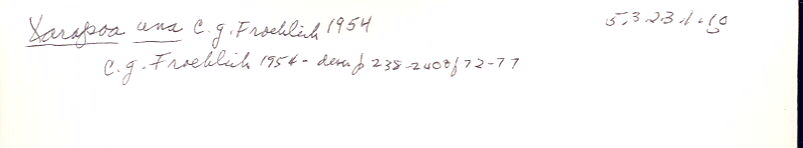 Xarapoa una C.G. Froehlich 1954 5.3.23.1.10
C.G. Froehlich 1954 - descr p 238-240 f 72-77